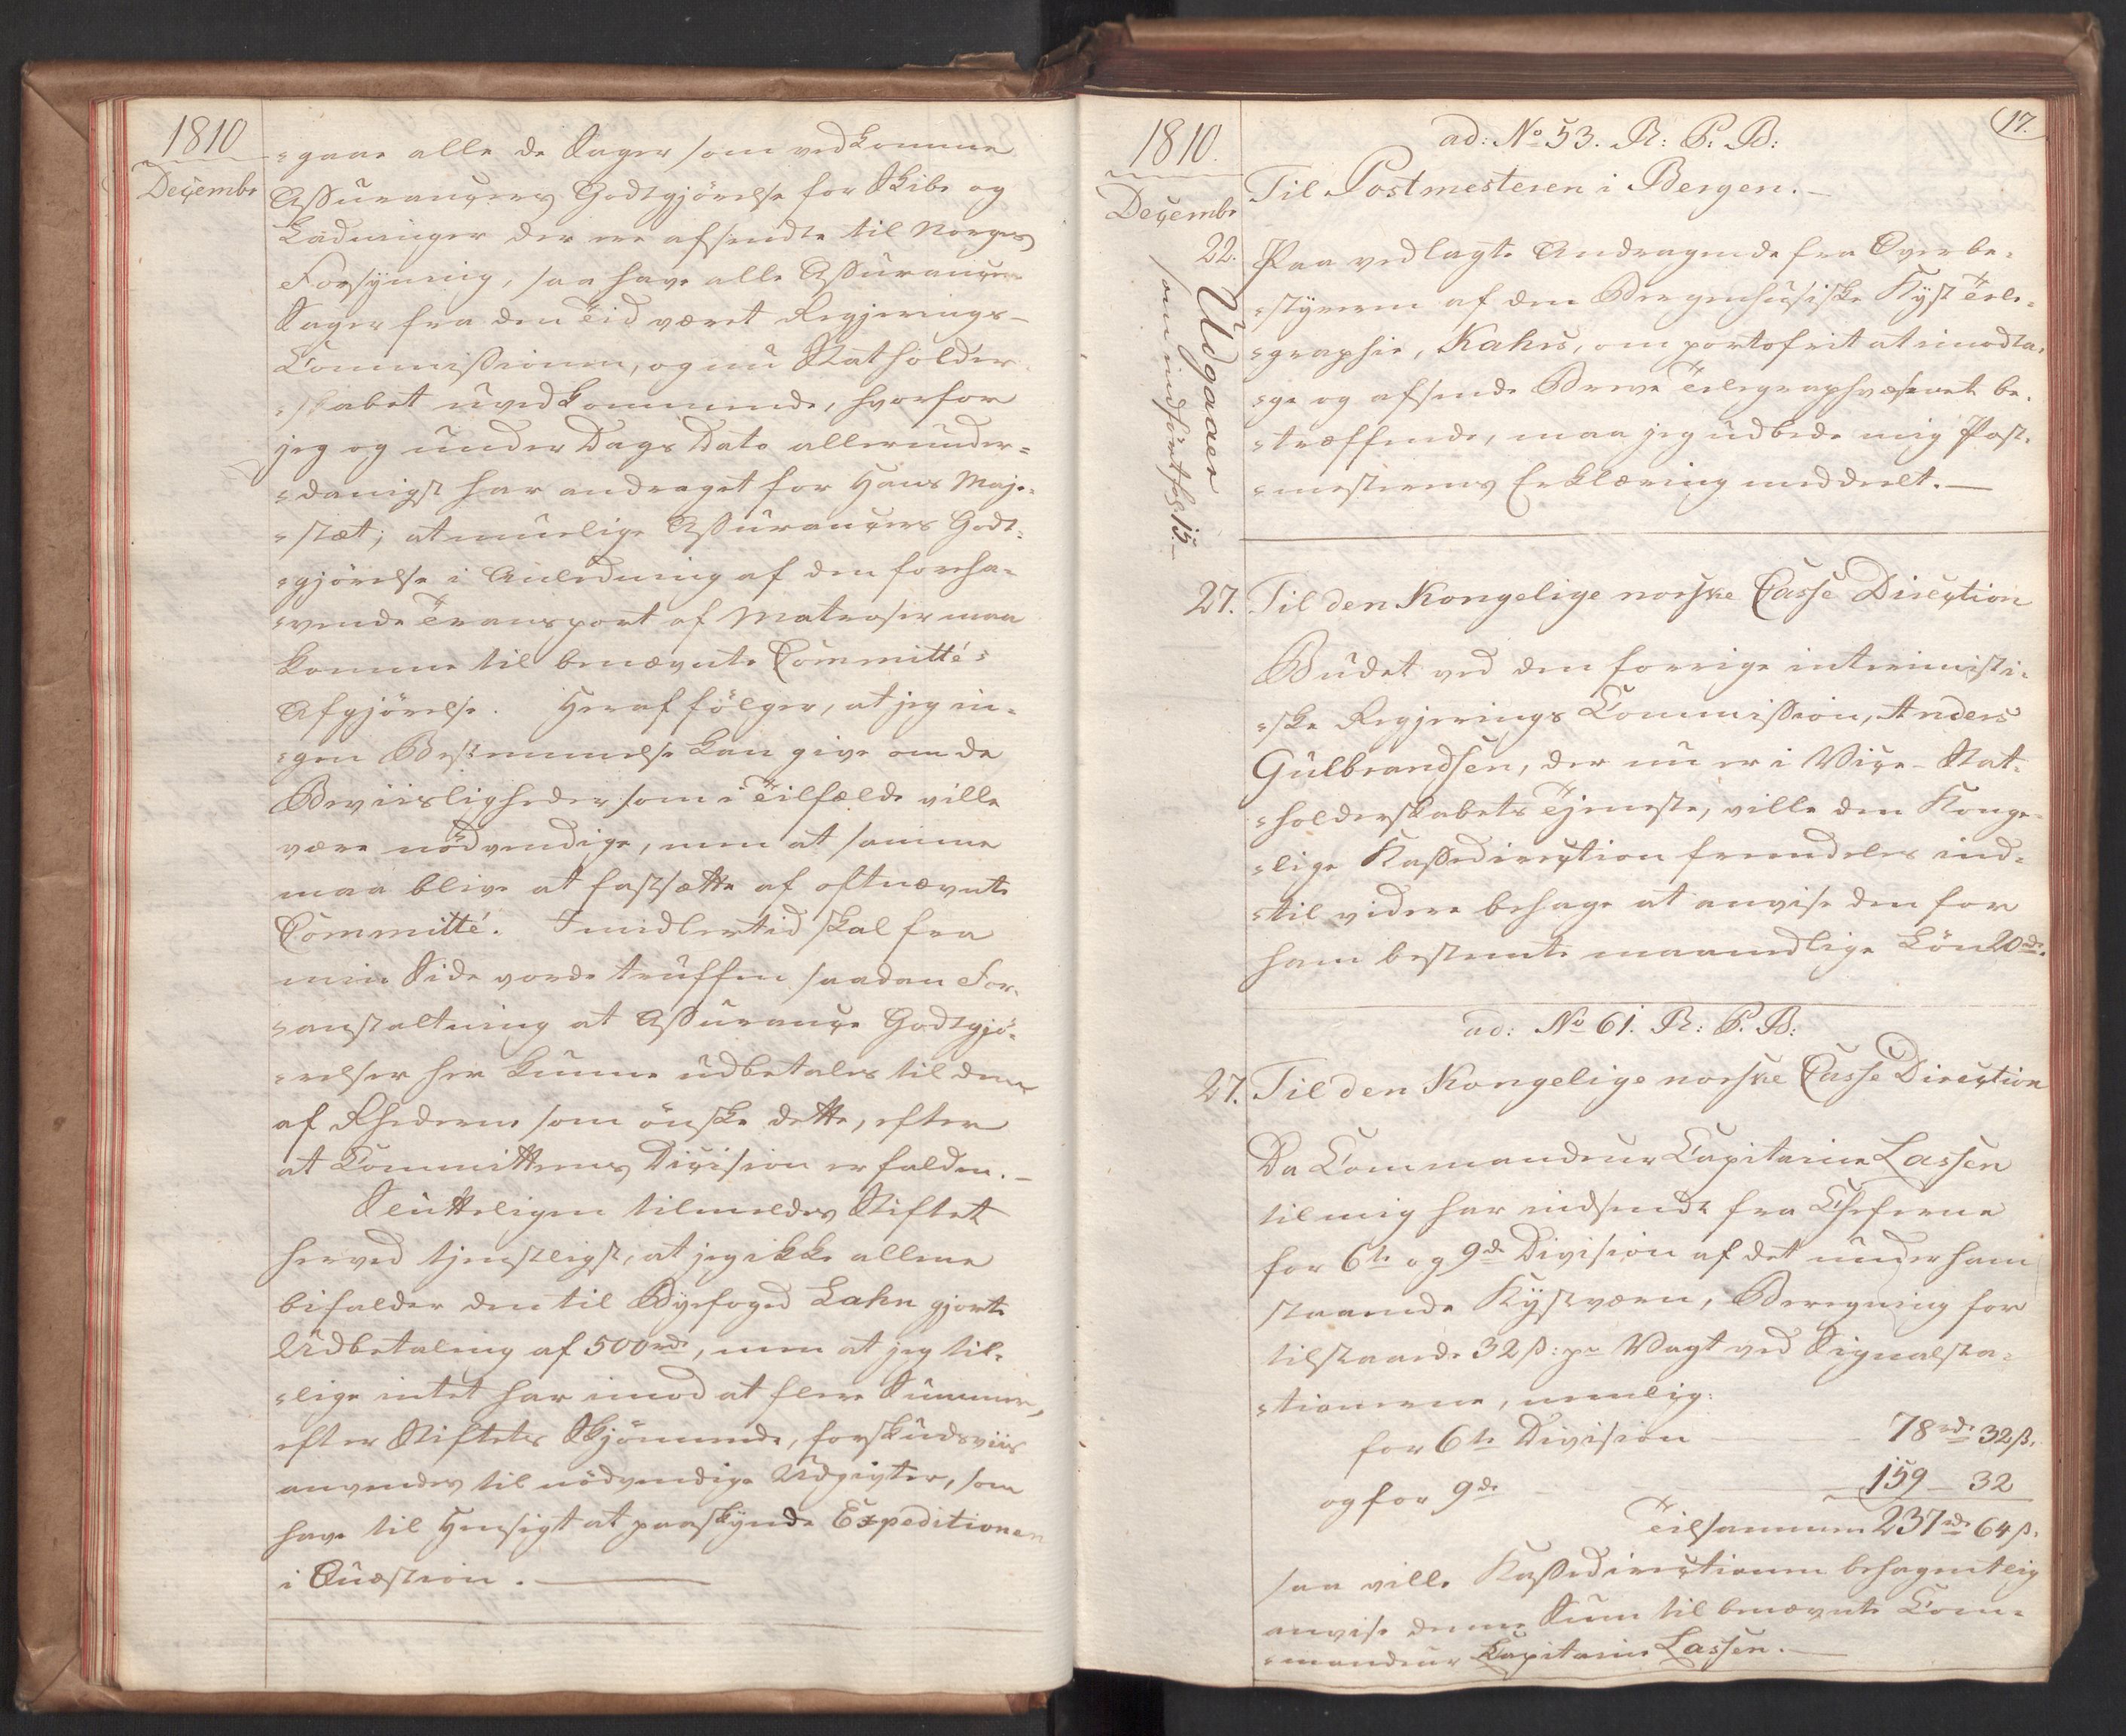 1810
Decembr
=gaae alle de Sager som vedkomme
Assurancers Godtgjörelse for Skibe og
Ladninger der ere afsendte til Norges
Forsyning, saa have alle Assurance
Sager fra den Tid været Regjerings-
Commissionen, og nu Statholder
=skabet uvedkommende, hvorfor
jeg og under Dags Dato allerunder=
=danigst har andraget for Hans Maje=
=stæt; at muelige Assurancers Godt=
=gjörelse i Anledning af den foreha=
=vende Transport af Matroser maa
komme til benævnte Committé's
Afgjörelse. Heraf fölger, at jeg in=
=gen Bestemmelse kan give om de
Beviisligheder som i Tilfælde ville
være nödvendige, men at samme
maa blive at fastsætte af oftnævnte
Committé. Imidlertid skal fra
min Side vorde truffen saadan For=
=anstaltning at Assurance Godtgjö=
=relser her kunne udbetales til dem
af Rhederne som önske dette, efter
at Committeens Dicision er falden.-
Slutteligen tilmeldes Stiftet
herved tjenstligst, at jeg ikke allene
bifalder den til Byefoged Lahn gjorte
Udbetaling af 500 rd, men at jeg til=
=lige intet har imod at flere Summer,
efter Stiftets Skjönnende, forskudsviis
anvendes til nödvendige Udgivter, som
have til Hensigt at paaskynde Expeditionen
i Quæstion.
17.
1810.
Decembr
ad: No 53. R: P. B:
Til Postmesteren i Bergen.-
22. Paa vedlagte Andragende fra Overbe=
=styreren af den Bergenhusiske Kyst Tele=
=graphie, Kahrs, om portofrit at imodta=
=ge og afsende Breve Telegraphvæsenet be=
=træffende, maa jeg udbede mig Post=
=mesterens Erklæring meddeelt.-
Udgaaer
som indfört fol: 15.-
27. Til den Kongelige norske Casse Direction
Budet ved den forrige interimisti=
=ske Regjerings Commission, Anders
Gulbrandsen, der nu er i Vice-Stat=
=holderskabets Tjeneste, ville den Konge=
=lige Kassedirection fremdeles ind=
=til videre behage at anvise den for
ham bestemte maanedlige Lön 20 rd.
ad: No 61. R: P. B:
27. Til den Kongelige norske Casse Direction
Da Commandeur Capitaine Lassen
til mig har indsendt fra Cheferne
for 6te og 9de Division af det under ham
staaende Kystværn, Beregning for
tilstaaede 32 ß: pr Vagt ved Signalsta=
=tionerne, nemlig:
for 6te Division 78 rd. 32 ß.
og for 9de 159 - 32
Tilsammen 237 rd. 64 ß.
saa ville Kassedirectionen behagentlig
anvise denne Sum til benævnte Com=
=mandeur Kapitaine Lassen.-